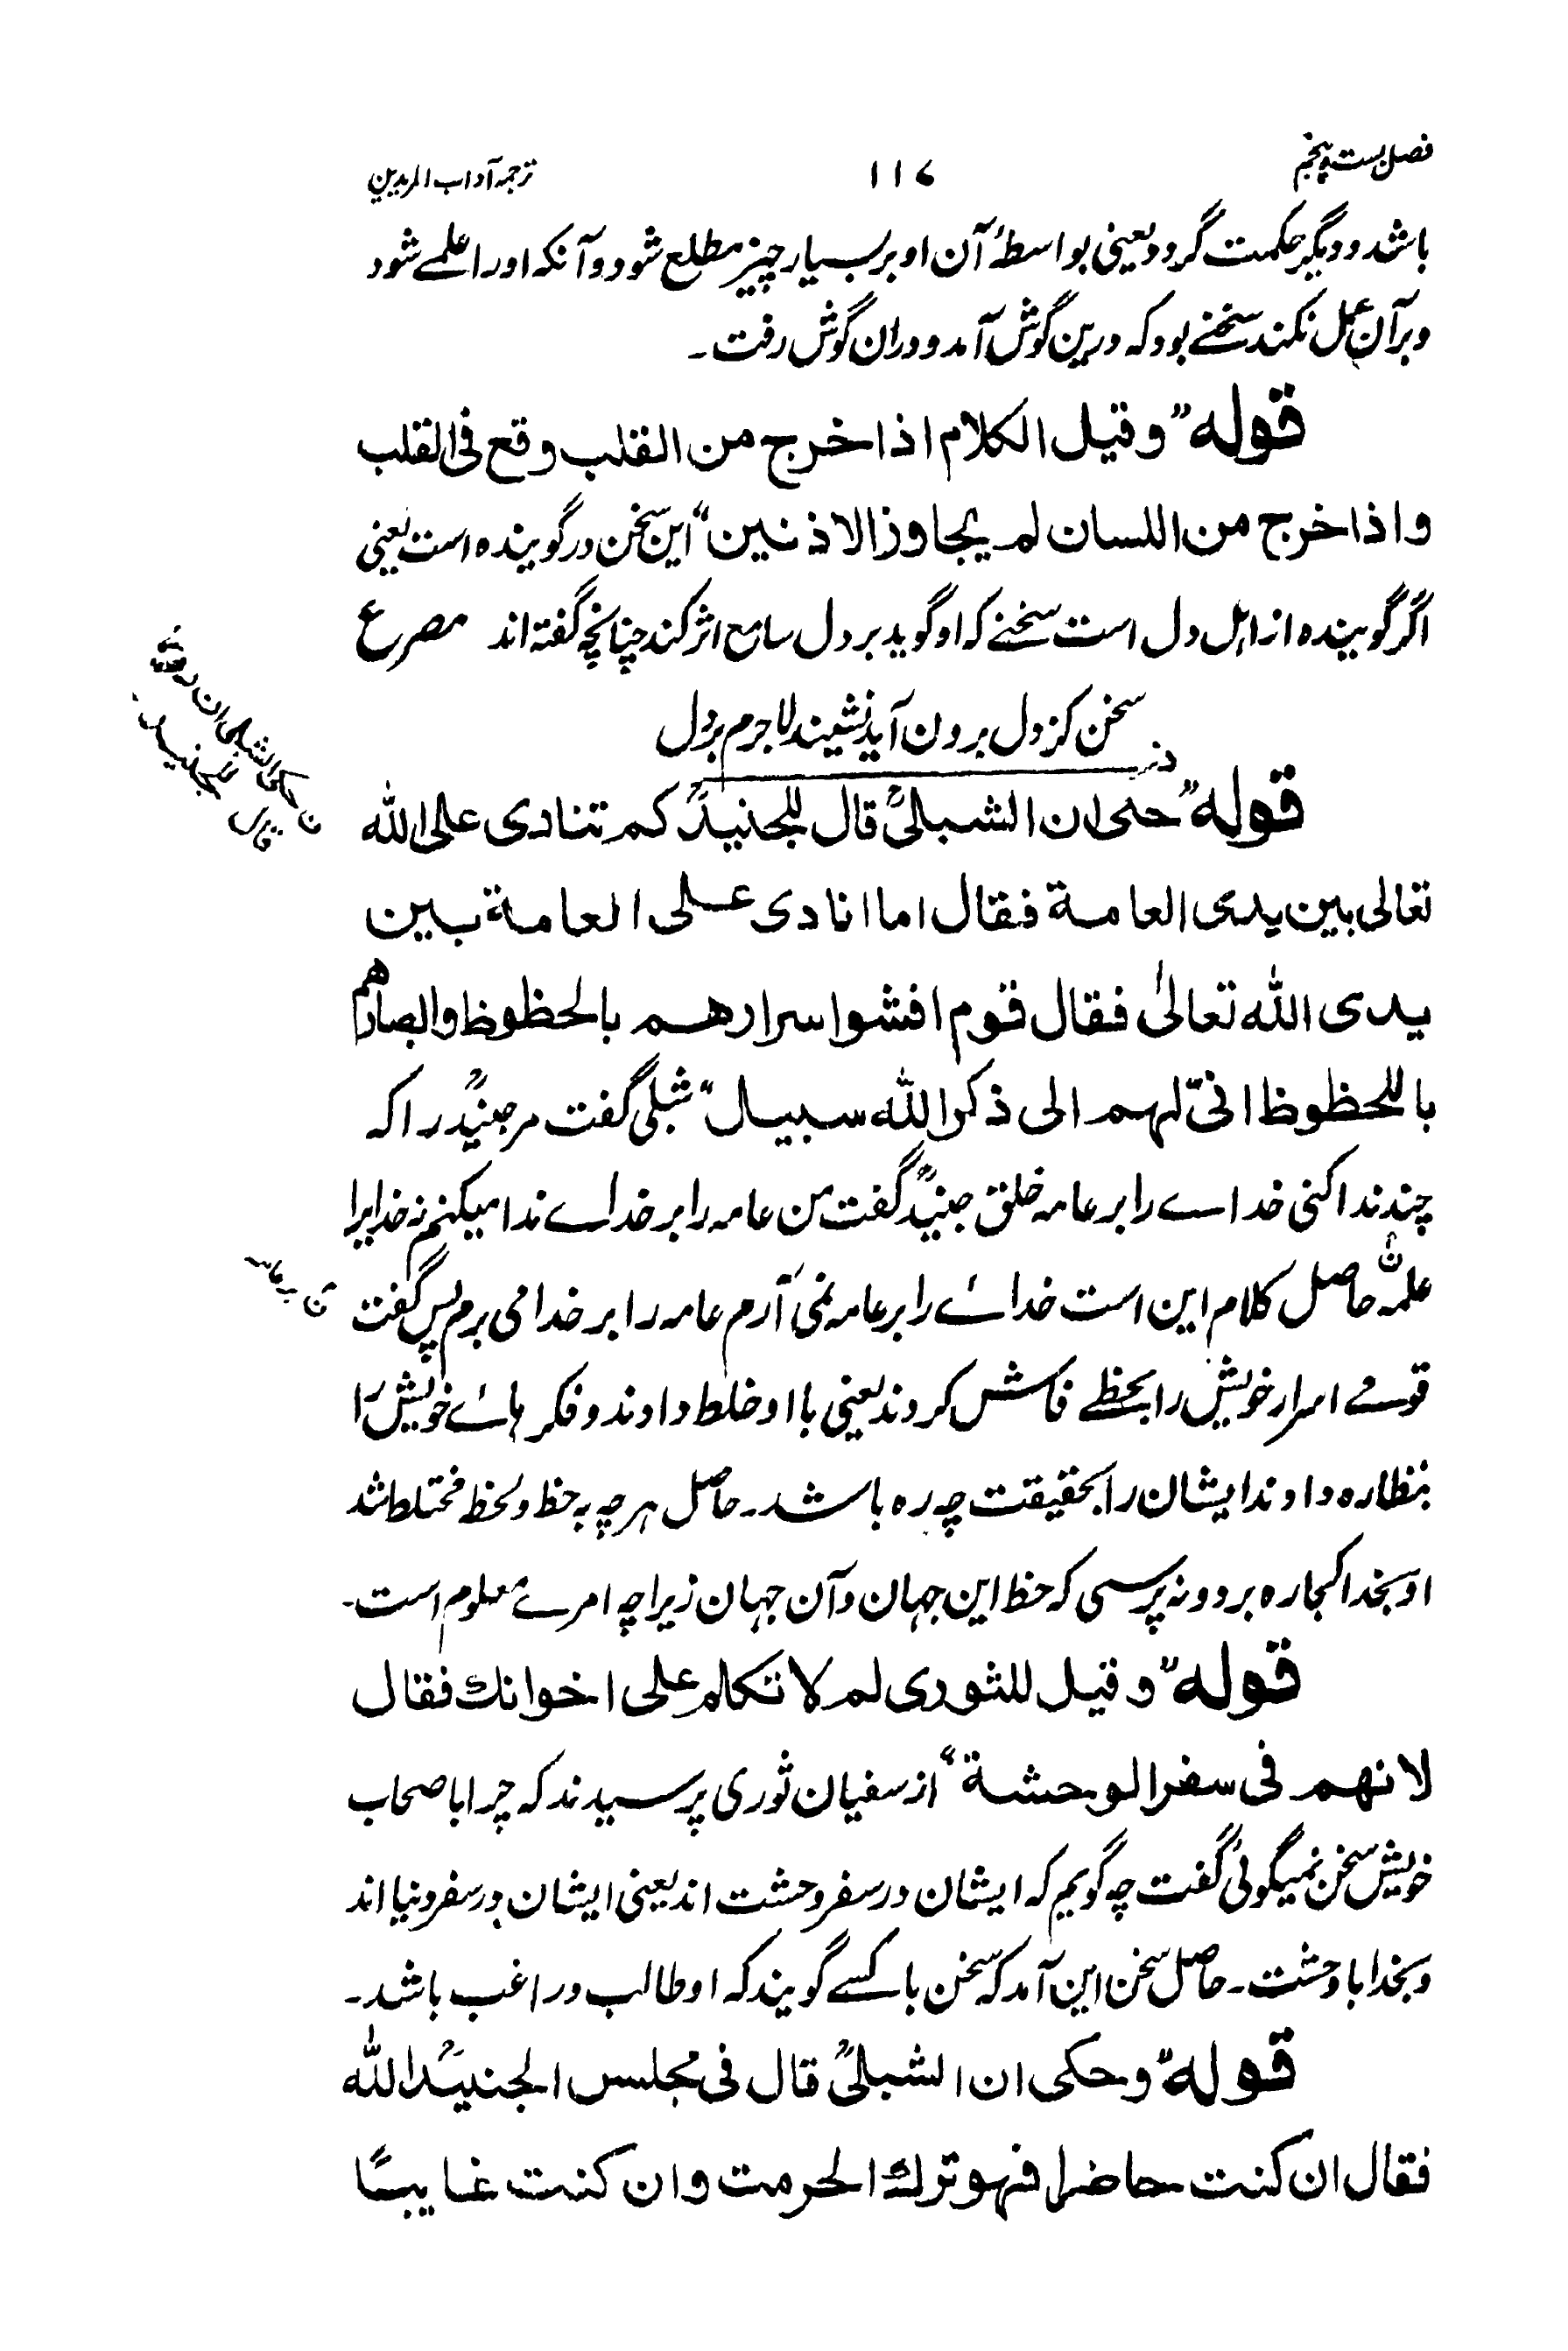 فصل بست و پنجم
۱۱۷
ترجمه آداب المریدین
باشد و دیگر حکمت گرود یعنی بواسطۂ آن او بر بسیار چیز مطلع شود و آنکه اورا علمے شود
و بر آن عمل نکند سخنے بود که درین گوش آمد و دران گوش رفت۔
قوله "وقیل الکلام اذا خرج من القلب وقع فی القلب
واذا خرج من اللسان لم یجاوز الاذنین" این سخن در گوینده است یعنی
اگر گوینده از اهل دل است سخنے که او گوید بر دل سامع اثر کند چنانچه گفته اند مصرع
سخن کز دل برون آید نشیند لاجرم بر دل
قوله "حکی ان الشبلیؒ قال للجنیدؒ کم تنادی علی الله
تعالی بین یدی العامة فقال اما انادی علی العامة بین
یدی الله تعالیٰ فقال قوم افشوا سرارهم بالحظوظ وابصارهم
باللحظوظ انیّ لهم الی ذکر الله سبیل" شبلی گفت مر جنیدؒ را که
چند ندا کنی خداے را بر عامه خلق جنیدؒ گفت من عامه را بر خداے ندا میکنم نه خدایرا
حاصل کلام این است خدائے را بر عامه نمی آرم عامه را بر خدا می برم پس گفت
قومے اسرار خویش را بحظے فاش کردند یعنی با او خلط دادند و فکر ہائے خویش را
بنظاره دادند ایشان را بحقیقت چه ره باشد۔ حاصل هرچه به حظ و لحظ مختلط شد
او بخدا کجا ره برد و نه پرسی که حظ این جهان و آن جهان زیرا چه امرے معلوم است۔
قوله "وقیل للثوری لم لا تکلم علی اخوانك فقال
لانهم فی سفر الوحشة" از سفیان ثوری پرسیدند که چرا با صحاب
خویش سخن نمیگوئی گفت چه گویم که ایشان در سفر وحشت اند یعنی ایشان در سفر دنیا اند
و بخدا با وحشت۔ حاصل سخن این آمد که سخن با کسے گویند که او طالب و راغب باشد۔
قوله "وحکی ان الشبلیؒ قال فی مجلس الجنیدؒ الله
فقال ان کنت حاضرا فهو ترك الحرمت وان کنت غایبًا